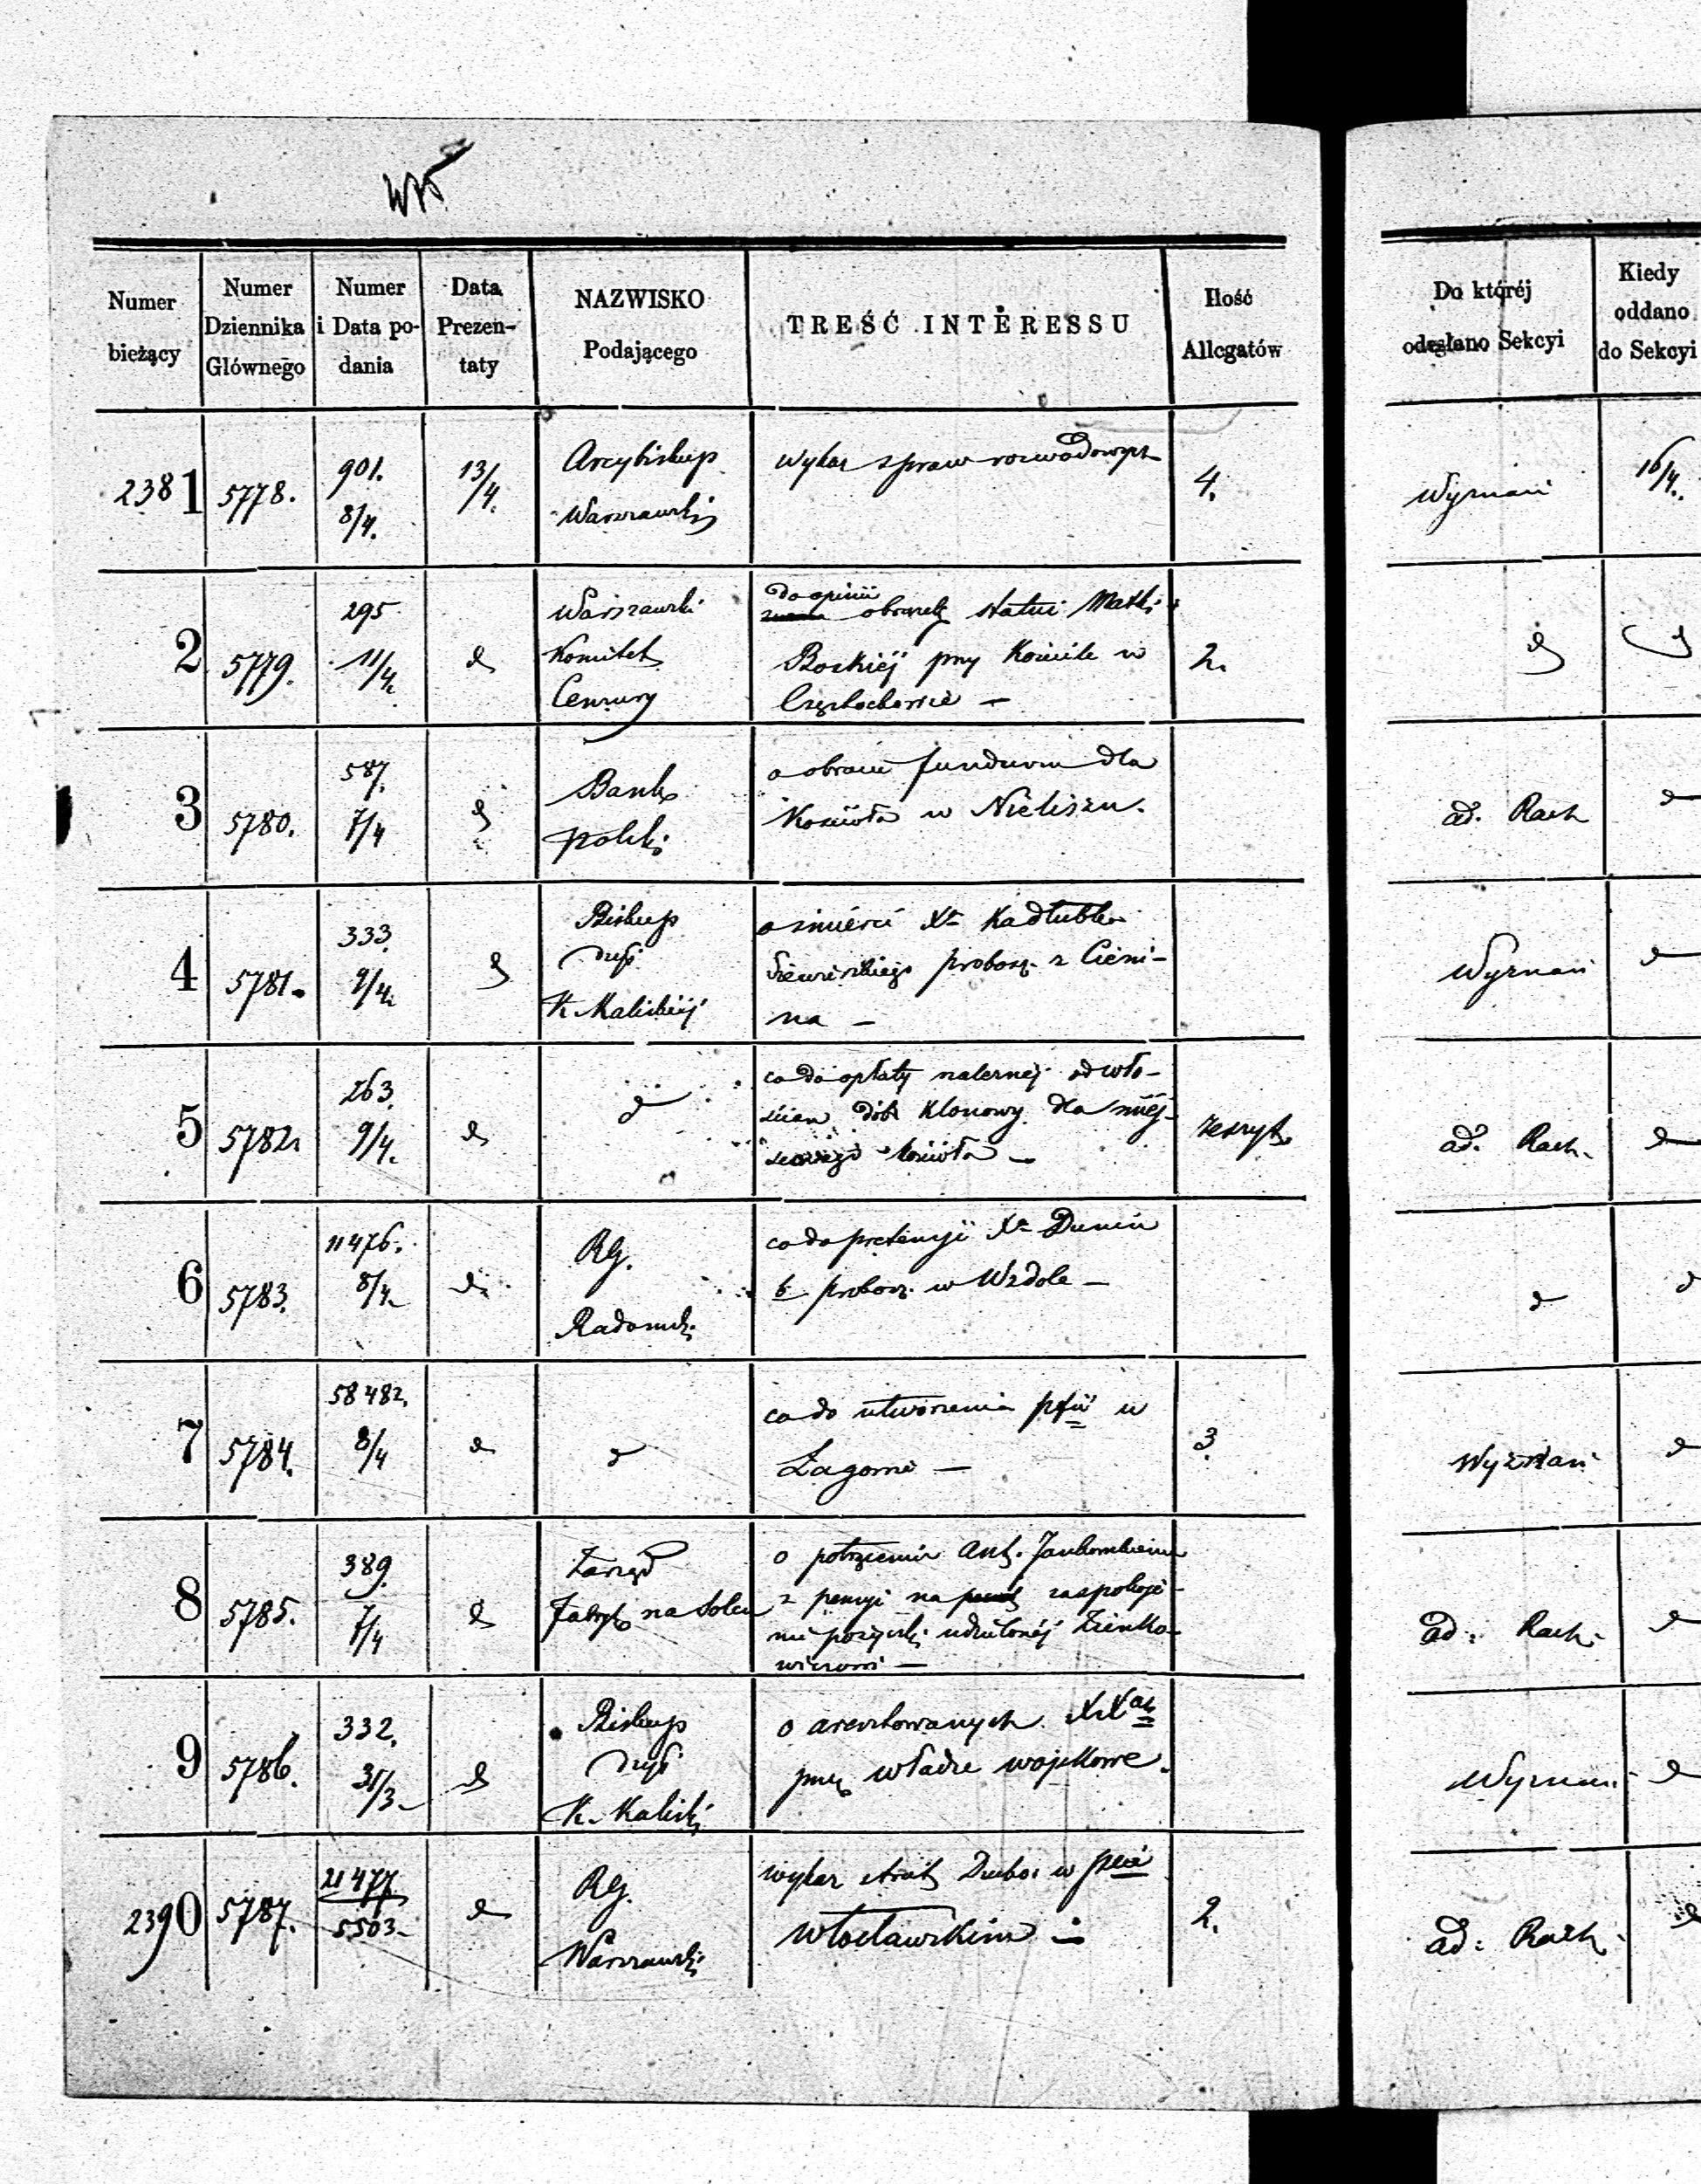 Numer bieżący
Numer Dziennika Głównego
Numer i Data podania
Data Prezentaty
NAZWISKO Podającego
TREŚĆ INTERESSU
Ilość Allegatów
Do któréj odesłano Sekcyi
Kiedy oddano do Sekcyi
2381
5778.
901.
8/4.
13/4.
Arcybiskup
Warszawski
wykaz spraw rozwodowych
4.
Wyznań
16/4.
2
5779.
295
11/4
d
Warszawski
Komitet
Cenzury
do opinii
obrazek statui Matki
Boskiéj przy Kościele w
Częstochowie —
2.
d
3
5780.
587.
7/4
d
Bank
polski
o obrocie funduszu dla
Kościoła w Nieliszu.
ad. Rach
d
4
5781.
333.
9/4.
d
Biskup
dyec
K. Kaliskiéj
o śmierci Xa Kadłubka
probosz. z Cieni-
na —
Wyznań
d
5
5782.
263.
9/4.
d
d
co do opłaty należnej od wło-
ścian dóbr Klonowy dla miéj-
scowego kościoła —
zeszyt.
ad. Rach.
d
6
5783.
11476.
8/4
d
RG.
Radomski
co do pretensyi Xa Dunin
b. probosz. w Wzdole —
d
d
7
5784.
58482.
8/4
d
d
co do utworzenia pfii w
Zagorni —
3
Wyznań
d
8
5785.
389.
7/4
d
Zarząd
Fabryk na Solcu
o potrąceniu Ant. Jankowskiemu
z pensyi na zaspokoje-
nie pożyczki udzielonéj Zienko-
wiczowi —
ad: Rach.
d
9
5786.
332.
31/3
d
Biskup
dyec
K. Kaliski
o aresztowanych XXach
przez władze wojskowe.
Wyznań
d
2390
5787.
21477
5503
d
RG.
Warszawski
wykaz strat Duchow. w pcie
włocławskim —
2.
ad: Rach.
d